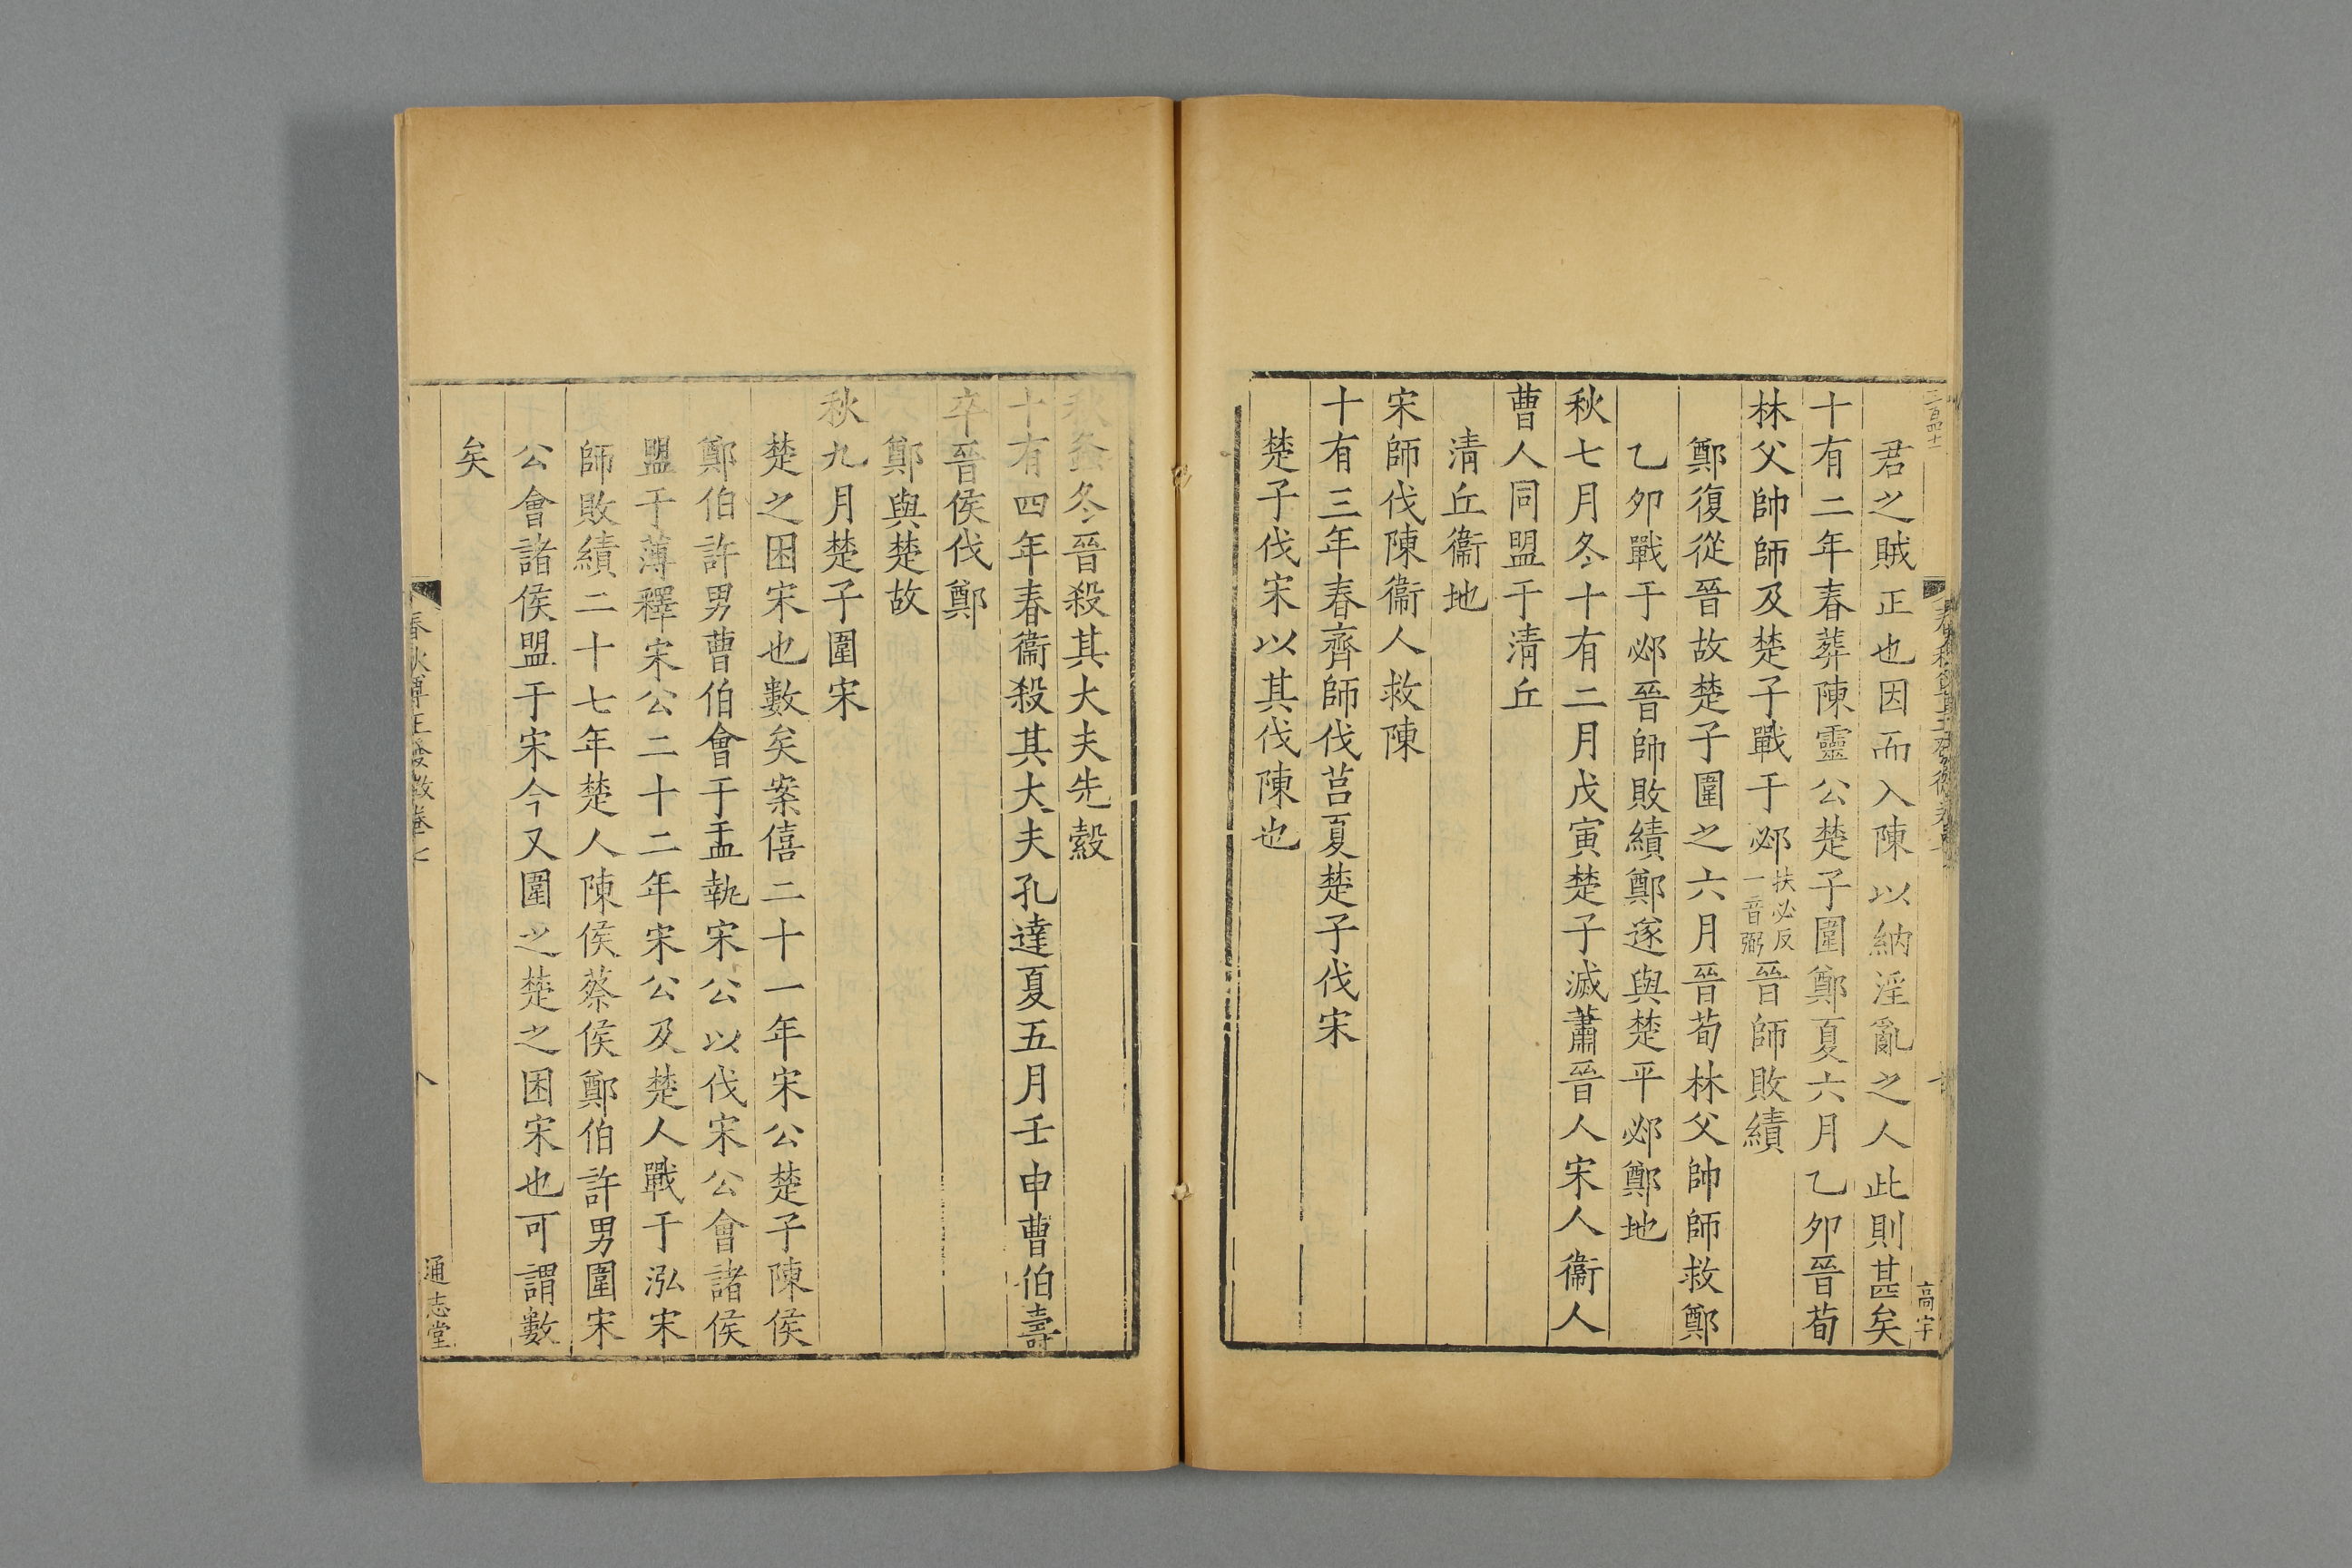 君之賊正也因而入陳以納淫亂之人此則甚矣
十有二年春葬陳靈公楚子圍鄭夏六月乙卯晉荀
林父帥師及楚子戰于邲扶必反一音弼晉師敗績
鄭復從晉故楚子圍之六月晉荀林父帥師救鄭
乙卯戰于邲晉師敗績鄭遂與楚平邲鄭地
秋七月冬十有二月戊寅楚子滅蕭晉人宋人衞人
曹人同盟于清丘
清丘衞地
宋師伐陳衞人救陳
十有三年春齊師伐莒夏楚子伐宋
楚子伐宋以其伐陳也
高宇
秋螽冬晉殺其大夫先縠
十有四年春衞殺其大夫孔達夏五月壬申曹伯壽
卒晉侯伐鄭
鄭與楚故
秋九月楚子圍宋
楚之困宋也數矣案僖二十一年宋公楚子陳侯
鄭伯許男曹伯會于盂執宋公以伐宋公會諸侯
盟于薄釋宋公二十二年宋公及楚人戰于泓宋
師敗績二十七年楚人陳侯蔡侯鄭伯許男圍宋
公會諸侯盟于宋今又圍之楚之困宋也可謂數
矣
春秋尊王發微卷七
八
通志堂